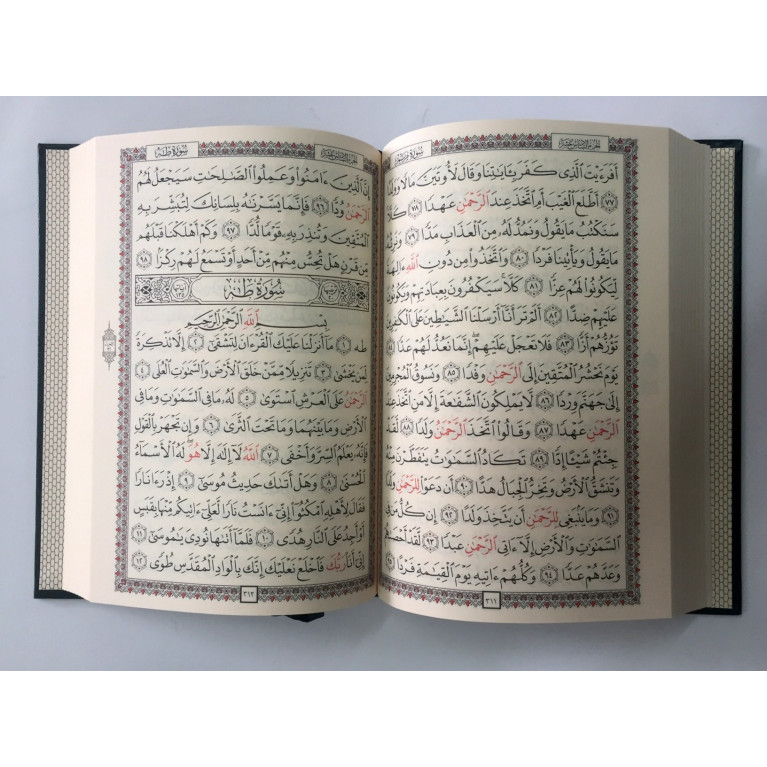 سورة مريم
أفرءيت الذى كفر بـايتنا وقال لأوتين مالا وولدا
٧٧ أطلع الغيب أم اتخذ عند الرحمن عهدا ٧٨ كلا
سنكتب ما يقول ونمد له من العذاب مدا ٧٩ ونرثه
ما يقول ويأتينا فردا ٨٠ واتخذوا من دون الله ءالهة
ليكونوا لهم عزا ٨١ كلا سيكفرون بعبادتهم ويكونون
عليهم ضدا ٨٢ ألم تر أنا أرسلنا الشيطين على الكفرين
تؤزهم أزا ٨٣ فلا تعجل عليهم إنما نعد لهم عدا ٨٤
يوم نحشر المتقين إلى الرحمن وفدا ٨٥ ونسوق المجرمين
إلى جهنم وردا ٨٦ لا يملكون الشفعة إلا من اتخذ عند
الرحمن عهدا ٨٧ وقالوا اتخذ الرحمن ولدا ٨٨ لقد
جئتم شيـا إدا ٨٩ تكاد السموت يتفطرن منه
وتنشق الأرض وتخر الجبال هدا ٩٠ أن دعوا للرحمن ولدا
٩١ وما ينبغى للرحمن أن يتخذ ولدا ٩٢ إن كل من فى
السموت والأرض إلا ءاتى الرحمن عبدا ٩٣ لقد أحصىهم
وعدهم عدا ٩٤ وكلهم ءاتيه يوم القيمة فردا ٩٥
٣١١
سورة طه
إن الذين ءامنوا وعملوا الصلحت سيجعل لهم
الرحمن ودا ٩٦ فإنما يسرنه بلسانك لتبشر به
المتقين وتنذر به قوما لدا ٩٧ وكم أهلكنا قبلهم
من قرن هل تحس منهم من أحد أو تسمع لهم ركزا ٩٨
سورة طه
بسم الله الرحمن الرحيم
طه ١ ما أنزلنا عليك القرءان لتشقى ٢ إلا تذكرة
لمن يخشى ٣ تنزيلا ممن خلق الأرض والسموت العلى ٤
الرحمن على العرش استوى ٥ له ما فى السموت وما فى
الأرض وما بينهما وما تحت الثرى ٦ وإن تجهر بالقول
فإنه يعلم السر وأخفى ٧ الله لا إله إلا هو له الأسماء
الحسنى ٨ وهل أتىك حديث موسى ٩ إذ رءا نارا
فقال لأهله امكثوا إنى ءانست نارا لعلى ءاتيكم منها بقبس
أو أجد على النار هدى ١٠ فلما أتىها نودى يموسى ١١
إنى أنا ربك فاخلع نعليك إنك بالواد المقدس طوى ١٢
٣١٢